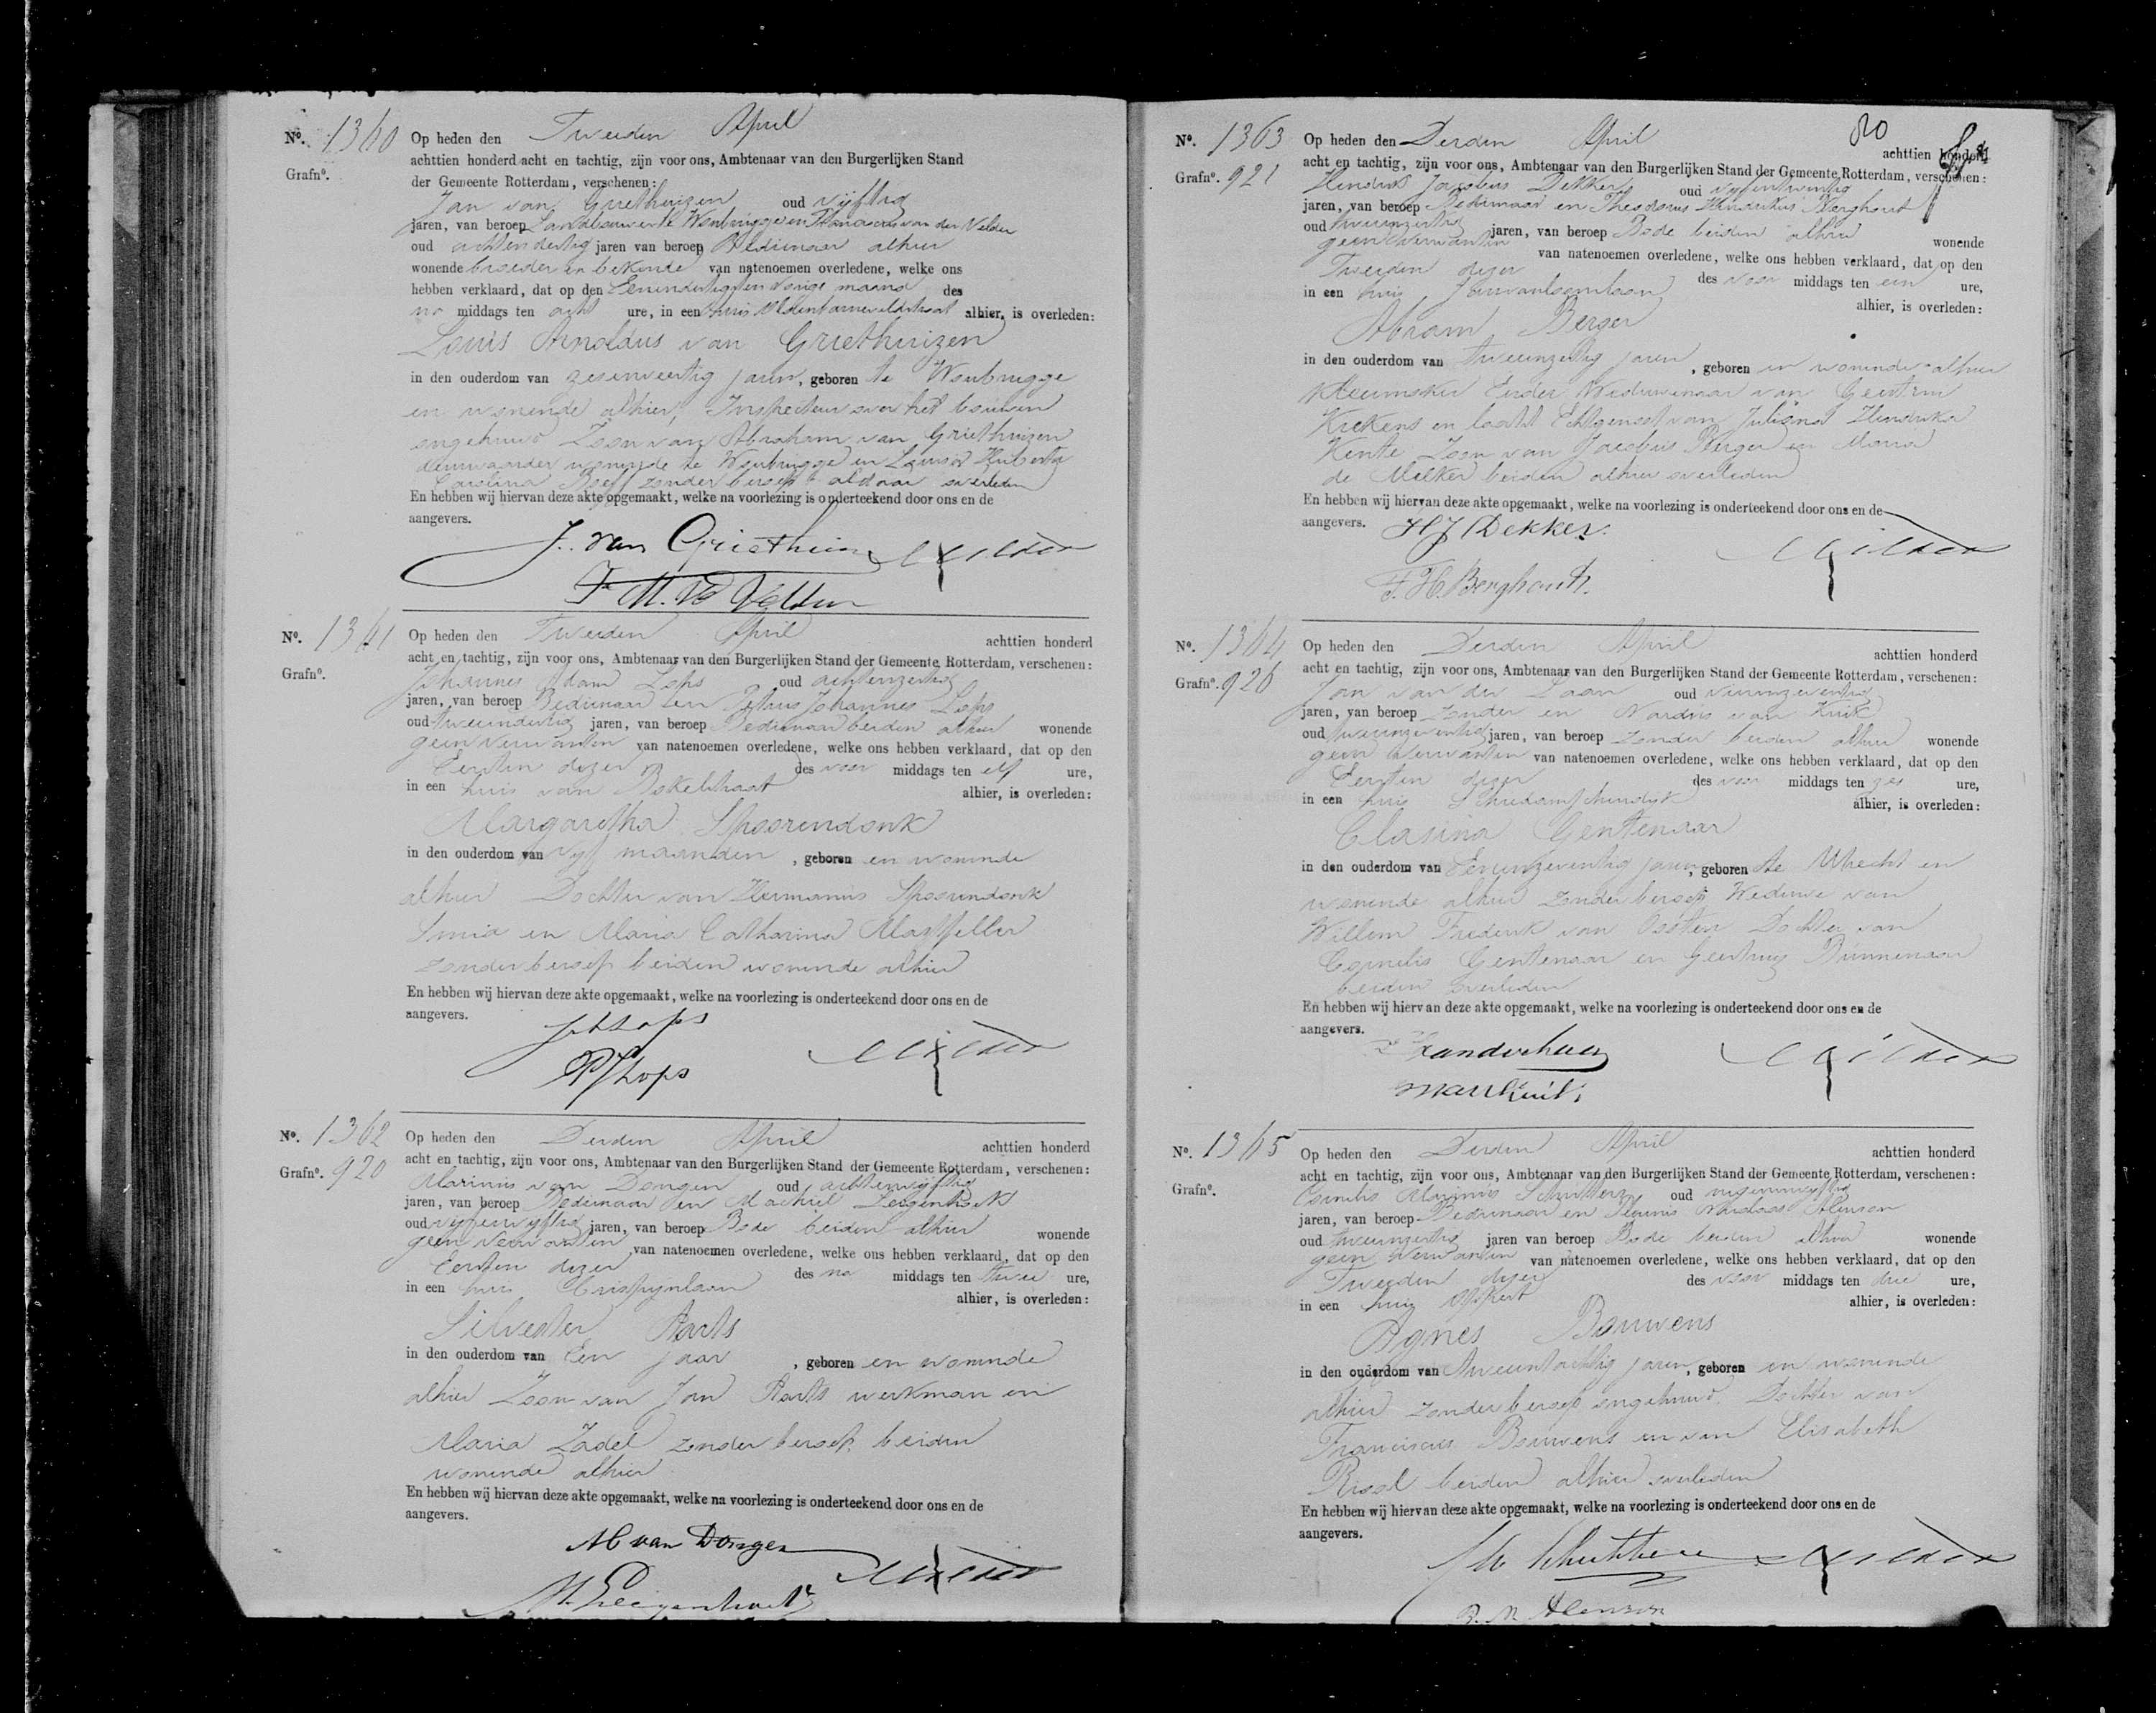 No. 1360 Op heden den Tweeden April
achttien honderd acht en tachtig, zijn voor ons, Ambtenaar van den Burgerlijken Stand
Grafno.
der Gemeente Rotterdam, verschenen:
Jan van Griethuizen oud vijftig
jaren, van beroep Landbouwer te Woubrugge en van der Velden
oud achtendertig jaren van beroep Bedienaar alhier
wonende broeder en bekende van natenoemen overledene, welke ons
hebben verklaard, dat op den Eenendertigsten vorige maand des
na middags ten acht ure, in een huis Oldenbarneveldstraat alhier, is overleden:
Louis Arnoldus van Griethuizen
in den ouderdom van zesenveertig jaren, geboren te Woubrugge
en wonende alhier, Inspecteur over het bouwen
ongehuwd Zoon van Abraham van Griethuizen
deurwaarder wonende te Woubrugge en Louisa Huberta
Carolina zonder beroep aldaar overleden
En hebben wij hiervan deze akte opgemaakt, welke na voorlezing is onderteekend door ons en de
aangevers.
J. van Griethuizen
No. 1361 Op heden den Tweeden April achttien honderd
acht en tachtig, zijn voor ons, Ambtenaar van den Burgerlijken Stand der Gemeente Rotterdam, verschenen:
Grafno.
Johannes Adam Lops oud achtenzestig
jaren, van beroep Bedienaar en Petrus Johannes Lops
oud tweeendertig jaren, van beroep Bedienaar beiden alhier wonende
geen verwanten van natenoemen overledene, welke ons hebben verklaard, dat op den
Eersten dezer des voor middags ten elf ure,
in een huis van Brakelstraat alhier, is overleden:
Margaretha Spoorendonk
in den ouderdom van vijf maanden, geboren en wonende
alhier Dochter van Hermanus Spoorendonk
Smid en Maria Catharina
zonder beroep beiden wonende alhier
En hebben wij hiervan deze akte opgemaakt, welke na voorlezing is onderteekend door ons en de
aangevers.
JA Lops
PJ Lops
No. 1362 Op heden den Derden April achttien honderd
acht en tachtig, zijn voor ons, Ambtenaar van den Burgerlijken Stand der Gemeente Rotterdam, verschenen:
Grafno. 920
Marinus van Dongen oud achtenvijftig
jaren, van beroep Bedienaar en Machiel
oud vijfenvijftig jaren, van beroep Bode beiden alhier wonende
geen verwanten van natenoemen overledene, welke ons hebben verklaard, dat op den
Eersten dezer des na middags ten twee ure,
in een huis Crispijnlaan alhier, is overleden:
Silvester Aarts
in den ouderdom van Een jaar, geboren en wonende
alhier Zoon van Jan Aarts werkman en
Maria Zadel zonder beroep beiden
wonende alhier
En hebben wij hiervan deze akte opgemaakt, welke na voorlezing is onderteekend door ons en de
aangevers.
M van Dongen
80
No. 1363 Op heden den Derden April achttien honderd
acht en tachtig, zijn voor ons, Ambtenaar van den Burgerlijken Stand der Gemeente Rotterdam, verschenen:
Grafno. 921
Hendrik Jacobus Dekker oud vijfentwintig
jaren, van beroep Bedienaar en Theodorus Hendrikus Berghout
oud tweeenzestig jaren, van beroep Bode beiden alhier wonende
geen verwanten van natenoemen overledene, welke ons hebben verklaard, dat op den
Tweeden dezer des voor middags ten een ure,
in een huis Janvanloonslaan alhier, is overleden:
Abram Berger
in den ouderdom van tweeenzestig jaren, geboren en wonende alhier
Kleermaker Eerder Weduwenaar van Geertrui
Kiekens en laatst Echtgenoot van Juliana Hendrika
Kente Zoon van Jacobus Berger en Maria
de Melker beiden alhier overleden
En hebben wij hiervan deze akte opgemaakt, welke na voorlezing is onderteekend door ons en de
aangevers.
HJ Dekker.
T. H. Berghout.
No. 1364 Op heden den Derden April achttien honderd
acht en tachtig, zijn voor ons, Ambtenaar van den Burgerlijken Stand der Gemeente Rotterdam, verschenen:
Grafno. 926
Jan van der Laan oud
jaren, van beroep zonder en Nardus van Kuik
oud jaren, van beroep zonder beiden alhier wonende
geen verwanten van natenoemen overledene, welke ons hebben verklaard, dat op den
Eersten dezer des voor middags ten zes ure,
in een huis Schiedamschendijk alhier, is overleden:
Clasina Gentenaar
in den ouderdom van Eenenzeventig jaren, geboren te Utrecht en
wonende alhier zonder beroep Weduwe van
Willem Frederik van Oosten Dochter van
Cornelis Gentenaar en Geertruij Binnenaar
beiden overleden
En hebben wij hiervan deze akte opgemaakt, welke na voorlezing is onderteekend door ons en de
aangevers.
No. 1365 Op heden den Derden April achttien honderd
acht en tachtig, zijn voor ons, Ambtenaar van den Burgerlijken Stand der Gemeente Rotterdam, verschenen:
Grafno.
Cornelis Marinus oud negenenvijftig
jaren, van beroep Bedienaar en Nicolaas Alenson
oud tweeenzestig jaren van beroep Bode beiden alhier wonende
geen verwanten van natenoemen overledene, welke ons hebben verklaard, dat op den
Tweeden dezer des voor middags ten drie ure,
in een huis Oppert alhier, is overleden:
Agnes Bouwens
in den ouderdom van tweeentachtig jaren, geboren en wonende
alhier zonder beroep ongehuwd. Dochter van
Franciscus Bouwens en van Elisabeth
beiden alhier overleden
En hebben wij hiervan deze akte opgemaakt, welke na voorlezing is onderteekend door ons en de
aangevers.
Alenson